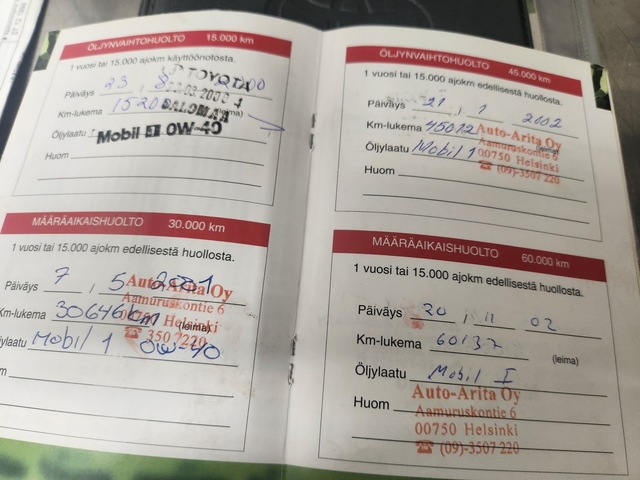 ÖLJYNVAIHTOHUOLTO 15.000 km
1 vuosi tai 15.000 ajokm käyttöönotosta.
Päiväys 23
TOYOTA
Km-lukema
Öljylaatu
Mobil 1 0W-40
Huom
MÄÄRÄAIKAISHUOLTO 30.000 km
1 vuosi tai 15.000 ajokm edellisestä huollosta.
Päiväys 7 , 5 2001
Auto-Arita Oy
Aamuruskontie 6
Km-lukema 30646 km
Helsinki
(leima)
☎ 350 7220
Öljylaatu Mobil 1 0W-40
ÖLJYNVAIHTOHUOLTO 45.000 km
1 vuosi tai 15.000 ajokm edellisestä huollosta.
Päiväys 21 , 1 2002
Km-lukema 45012
Auto-Arita Oy
Aamuruskontie 6
Öljylaatu Mobil 1
00750 Helsinki
☎ (09)-3507 220
Huom
MÄÄRÄAIKAISHUOLTO 60.000 km
1 vuosi tai 15.000 ajokm edellisestä huollosta.
Päiväys 20 , 11 02
Km-lukema 60137
(leima)
Öljylaatu Mobil I
Auto-Arita Oy
Huom
Aamuruskontie 6
00750 Helsinki
☎ (09)-3507 220